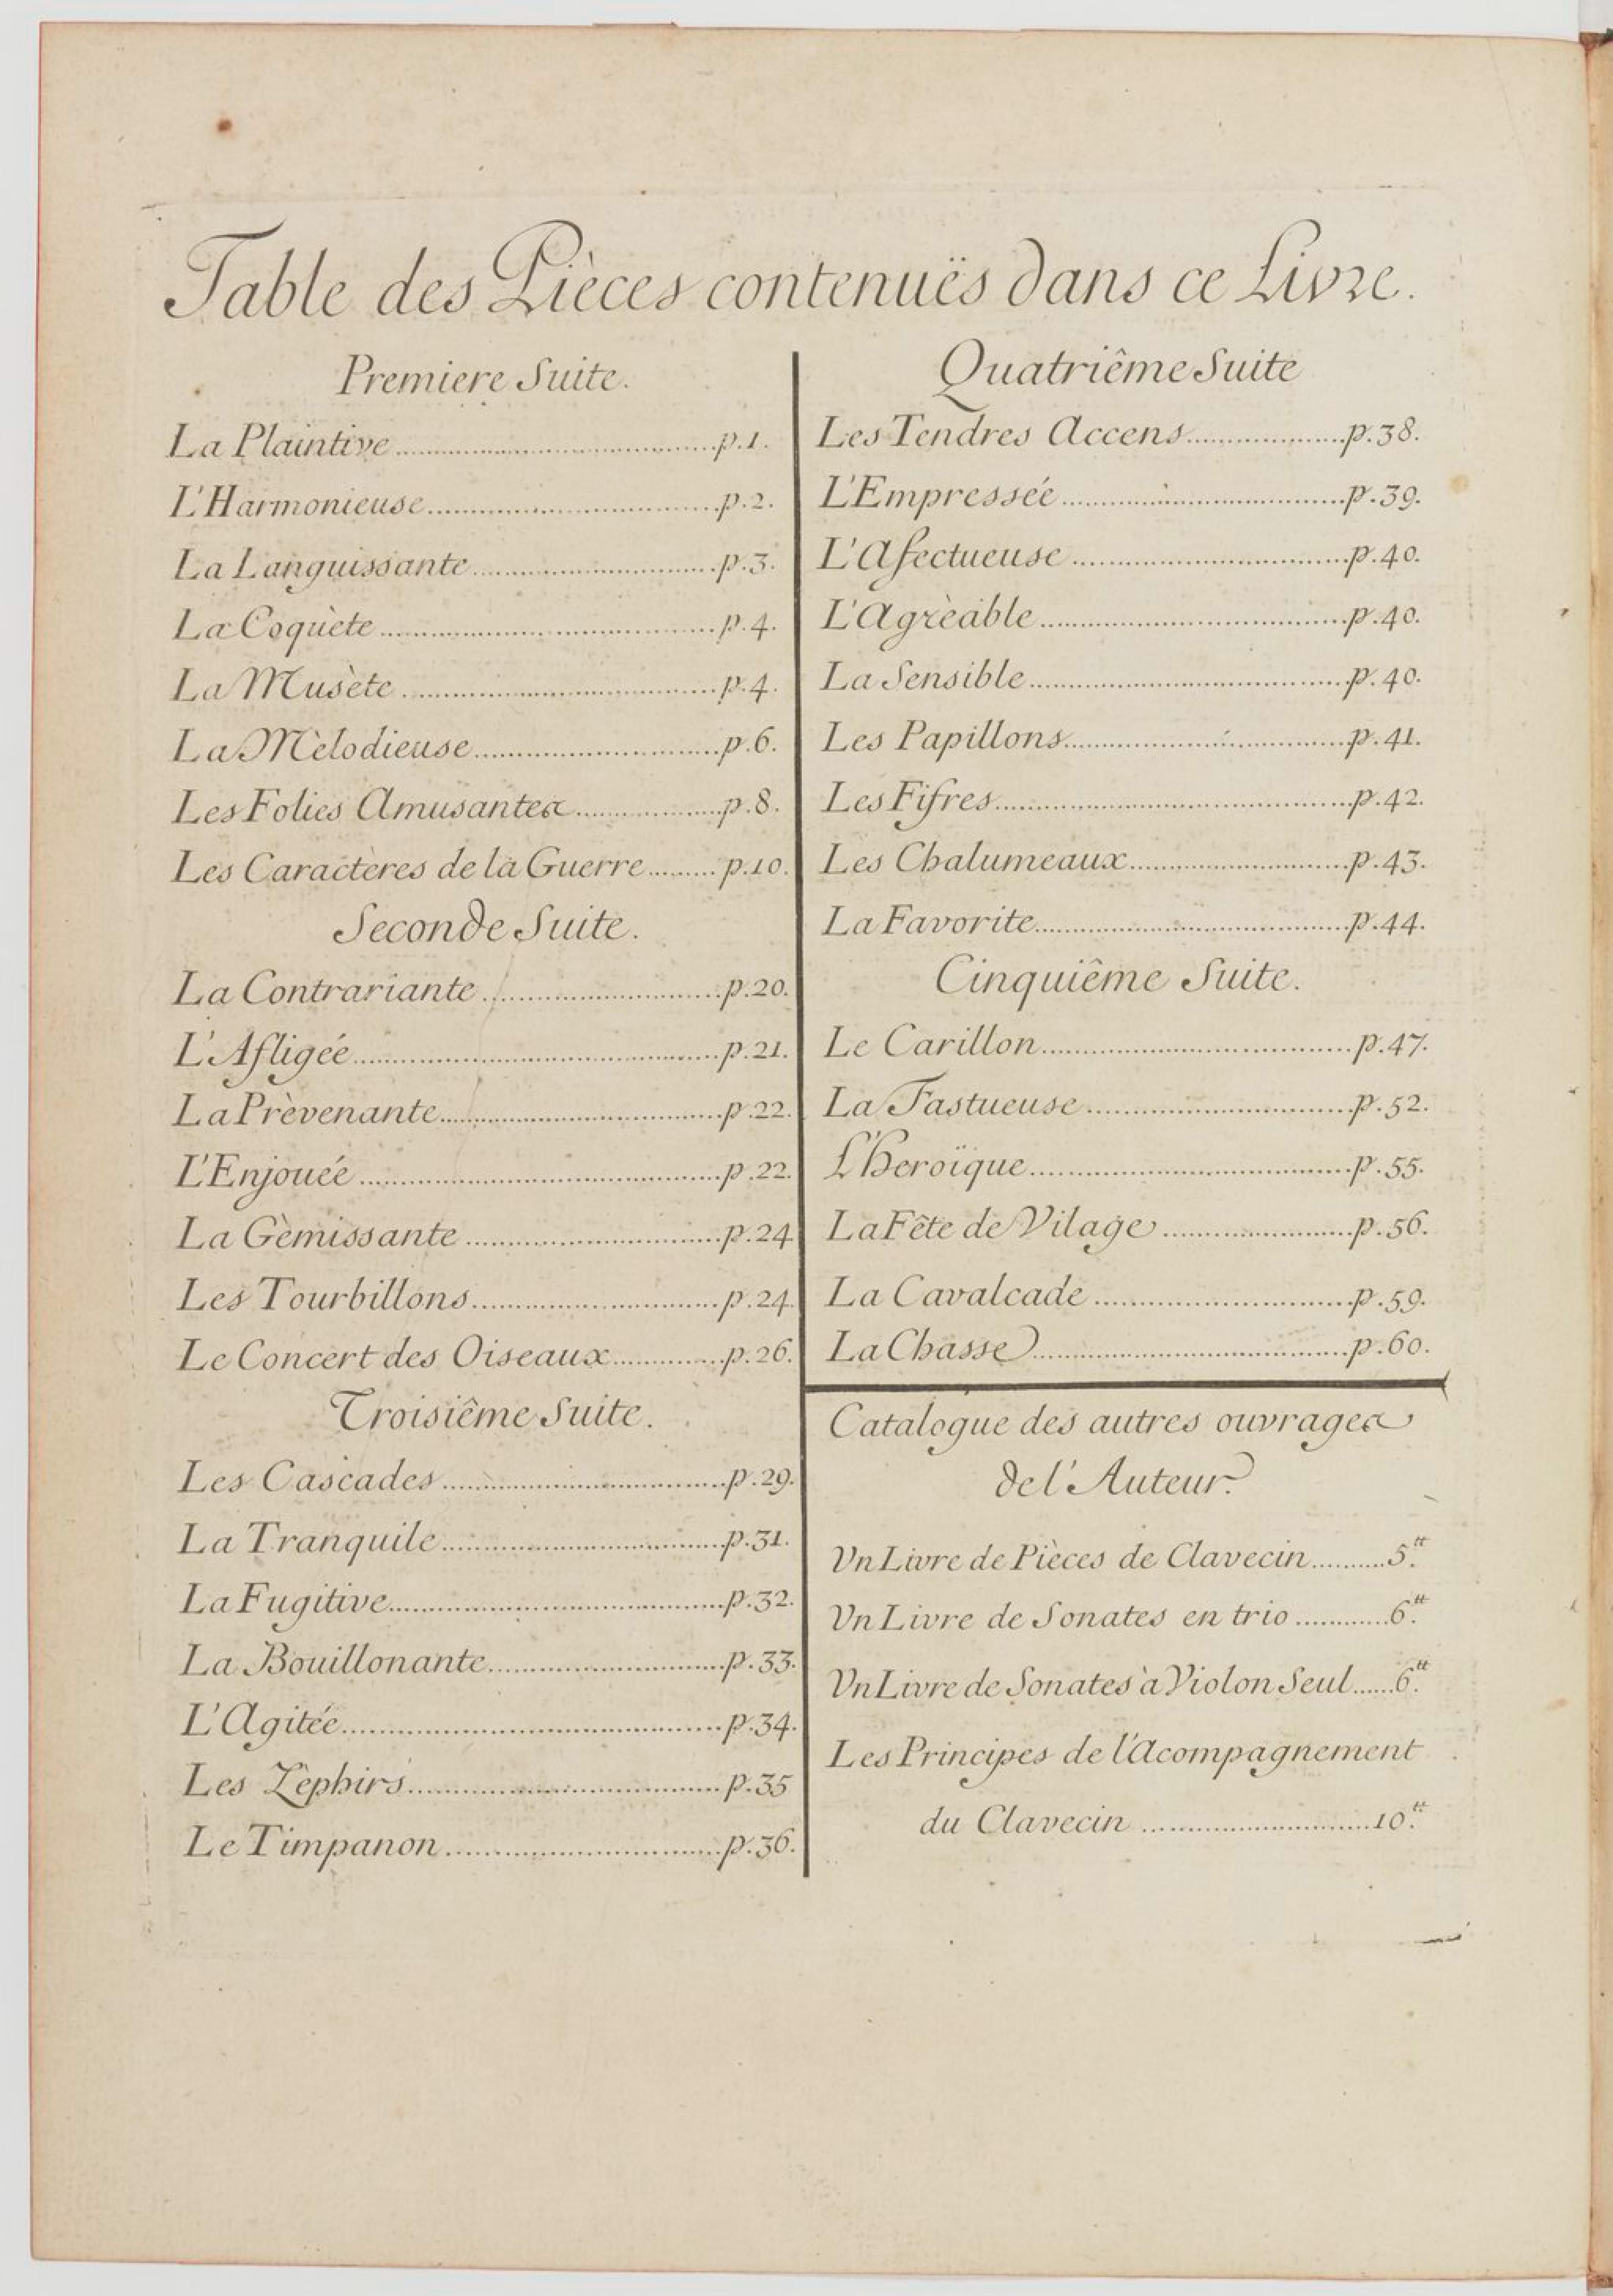 Table des Pièces contenuës dans ce Livre.
Premiere Suite.
La Plaintive.......p.1.
L'Harmonieuse.......p.2.
La Languissante.......p.3.
La Coquète.......p.4.
La Musète.......p.4.
La Mèlodieuse.......p.6.
Les Folies Amusantes.......p.8.
Les Caractères de la Guerre.......p.10.
Seconde Suite.
La Contrariante.......p.20.
L'Afligée.......p.21.
La Prèvenante.......p.22.
L'Enjouée.......p.22.
La Gèmissante.......p.24.
Les Tourbillons.......p.24.
Le Concert des Oiseaux.......p.26.
Troisiême Suite.
Les Cascades.......p.29.
La Tranquile.......p.31.
La Fugitive.......p.32.
La Bouillonante.......p.33.
L'Agitée.......p.34.
Les Zèphirs.......p.35
Le Timpanon.......p.36.
Quatriême Suite
Les Tendres Accens.......p.38.
L'Empressée.......p.39.
L'Afectueuse.......p.40.
L'Agrèable.......p.40.
La Sensible.......p.40.
Les Papillons.......p.41.
Les Fifres.......p.42.
Les Chalumeaux.......p.43.
La Favorite.......p.44.
Cinquiême Suite.
Le Carillon.......p.47.
La Fastueuse.......p.52.
L'Heroïque.......p.55.
La Fête de Vilage.......p.56.
La Cavalcade.......p.59.
La Chasse.......p.60.
Catalogue des autres ouvrages
de l'Auteur.
Vn Livre de Pièces de Clavecin.......5.tt
Vn Livre de Sonates en trio.......6.tt
Vn Livre de Sonates à Violon Seul.......6.tt
Les Principes de l'Acompagnement
du Clavecin.......10.tt